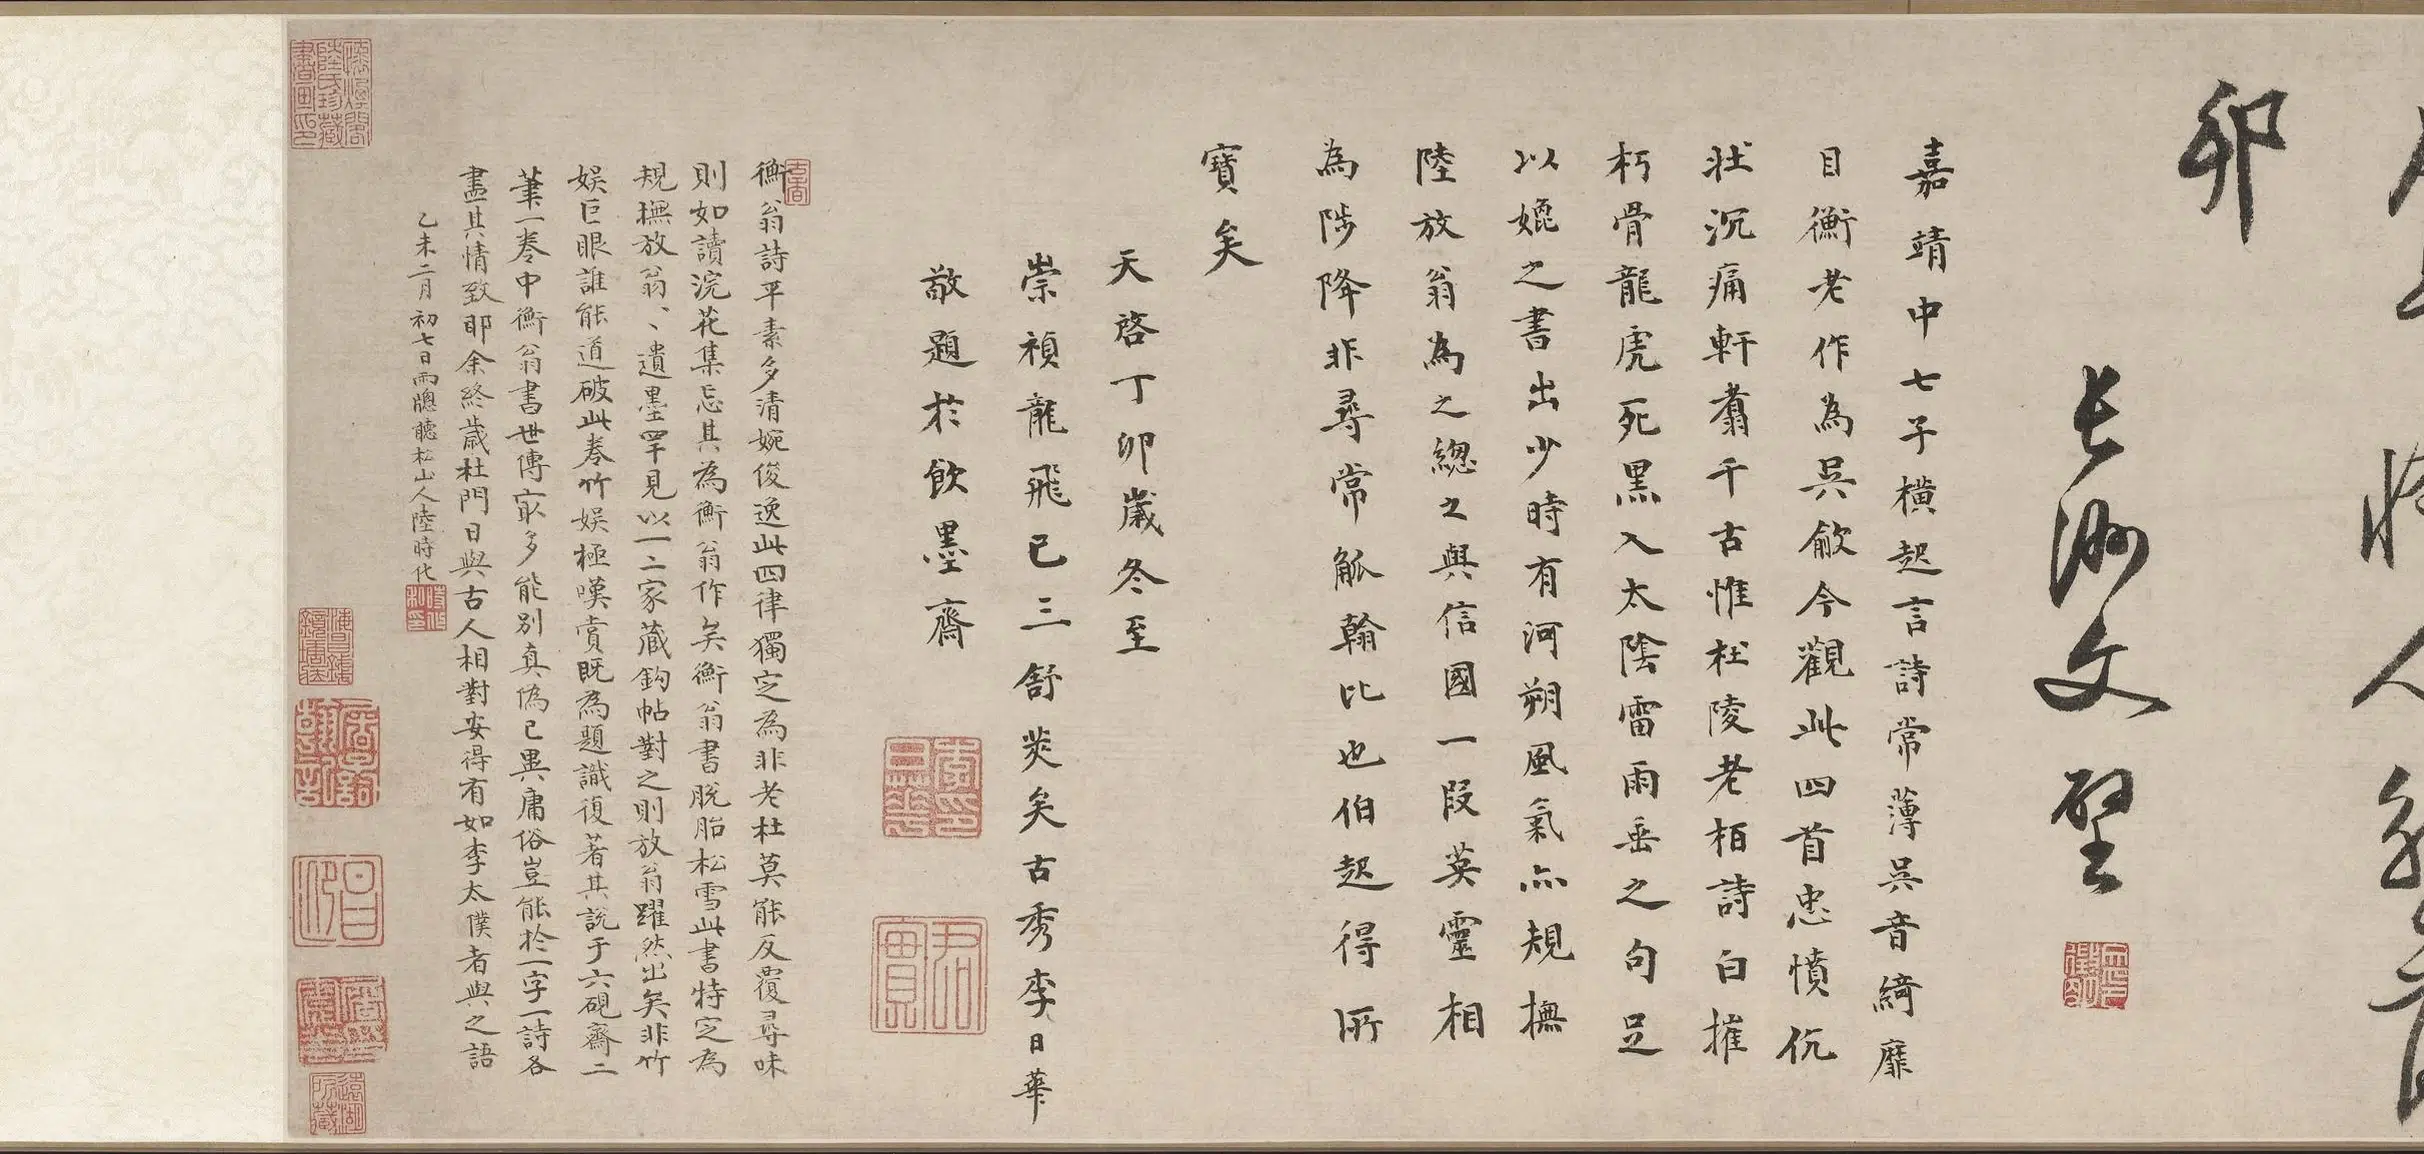 卯
長洲文壁
嘉靖中七子橫起言詩常薄吳音綺靡
目衡老作為吳歈今觀此四首忠憤伉
壯沉痛軒翥千古惟杜陵老栢詩白摧
朽骨龍虎死黑入太陰雷雨垂之句足
以媲之書出少時有河朔風氣亦規橅
陸放翁為之總之與信國一段英靈相
為陟降非尋常觚翰比也伯起得所
寶矣
天啓丁卯歲冬至
崇禎龍飛已三舒蓂矣古秀李日華
敬題於飲墨齋
衡翁詩平素多清婉俊逸此四律獨定為非老杜莫能反覆尋味
則如讀浣花集忘其為衡翁作矣衡翁書脫胎松雪此書特定為
規橅放翁、、遺墨罕見以一二家藏鈎帖對之則放翁躍然出矣非竹
娛巨眼誰能道破此卷竹娛極嘆賞既為題識復著其說于六硯齋二
筆一卷中衡翁書世傳㝡多能別真偽已異庸俗豈能於一字一詩各
盡其情致耶余終歲杜門日與古人相對安得有如李太僕者與之語
乙未二月初七日雨牎聽松山人陸時化